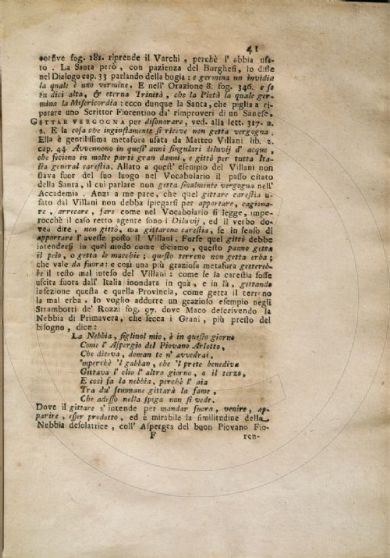 41
fortive fog. 182. riprende il Varchi, perchè l'abbia usa-
to. La Santa però, con pazienza del Borghesi, lo disse
nel Dialogo cap. 33 parlando della bugia: e germina un invidia
la quale è uno vermine. E nell'Orazione 8. fog. 346. e se
tu dici alta, & eterna Trinità, che la Pietà la quale ger-
mina la Misericordia: ecco dunque la Santa, che piglia a ri-
parare uno Scrittor Fiorentino da' rimproveri di un Sanese.
GITTAR VERGOGNA per disonorare, ved. alla lett. 317. n.
2. E la cosa che ingiustamente si riceve non getta vergogna.
Ella è gentilissima metafora usata da Matteo Villani lib. 2.
cap. 44. Avvennono in quest' anni singulari diluvij d' acque,
che fecioro in molte parti gran danni, e gittò per tutta Ita-
lia general carestia. Allato a quest' esempio del Villani non
istava fuor del suo luogo nel Vocabolario il passo citato
della Santa, il cui parlare non getta finalmente vergogna nell'
Accademia. Anzi a me pare, che quel gittare carestia us-
sato dal Villani non debba spiegarsi per apportare, cagiona-
re, arrecare, fare come nel Vocabolario si legge, imper-
rocchè il caso retto agente sono i Diluvij, ed il verbo do-
vea dire, non gittò, ma gittarono carestia, se in senso di
apportare l'avesse posto il Villani. Forse quel gittò debbe
intendersi in quel modo come diciamo, questo panno getta
il pelo, o getta le macchie; questo terreno non getta erba;
che vale da fuora: e così una più graziosa metafora getterebbe
il testo mal inteso del Villani: come se la carestia fosse
uscita fuora dall' Italia inondata in quà, e in là, gittando
infezione questa e quella Provincia, come getta il terreno
la mal erba. Io voglio addurre un grazioso esempio negli
Strambotti de' Rozzi fog. 97. dove Maco descrivendo la
Nebbia di Primavera, che secca i Grani, più presto del
bisogno, dice:
La Nebbia, figliuol mio, è in questo giorno
Come l'Aspergio del Piovano Arlotto,
Che diceva, doman te n' avvedrai,
'mperchè 'l gabban, che 'l prete benediva
Gittava l'olio l'altro giorno, o il terzo,
E così fa la nebbia, perchè l'aia
Tra du' semmane gittarà la fame,
Che adesso nella spiga non si vede.
Dove il gittare s'intende per mandar fuora, venire, ap-
parire, esser prodotto, ed è mirabile la similitudine della
Nebbia desolatrice, coll' Asperges del buon Piovano Fio-
F
ren-